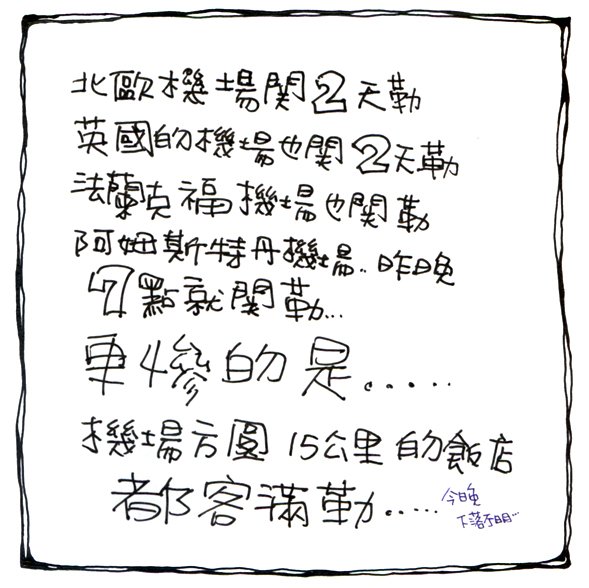 北歐機場関2天勒
英國的機場也関2天勒
法蘭克福機場也関勒
阿姆斯特丹機場..昨晚
7點就関勒...
更慘的是.....
機場方圓15公里的飯店
都客滿勒.....
今晚
下落不明...